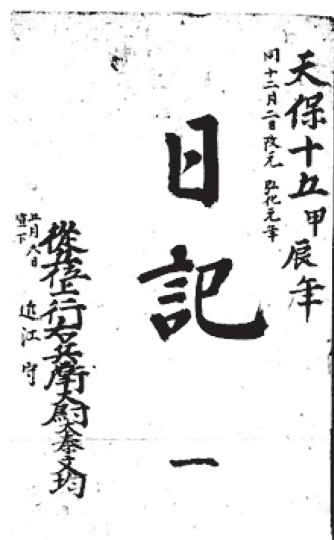 天保十五甲辰年
同十二月二日改元 弘化元年
日記 一
従五位下行右兵衛大尉大秦文均
五月八日
宣下
近江守